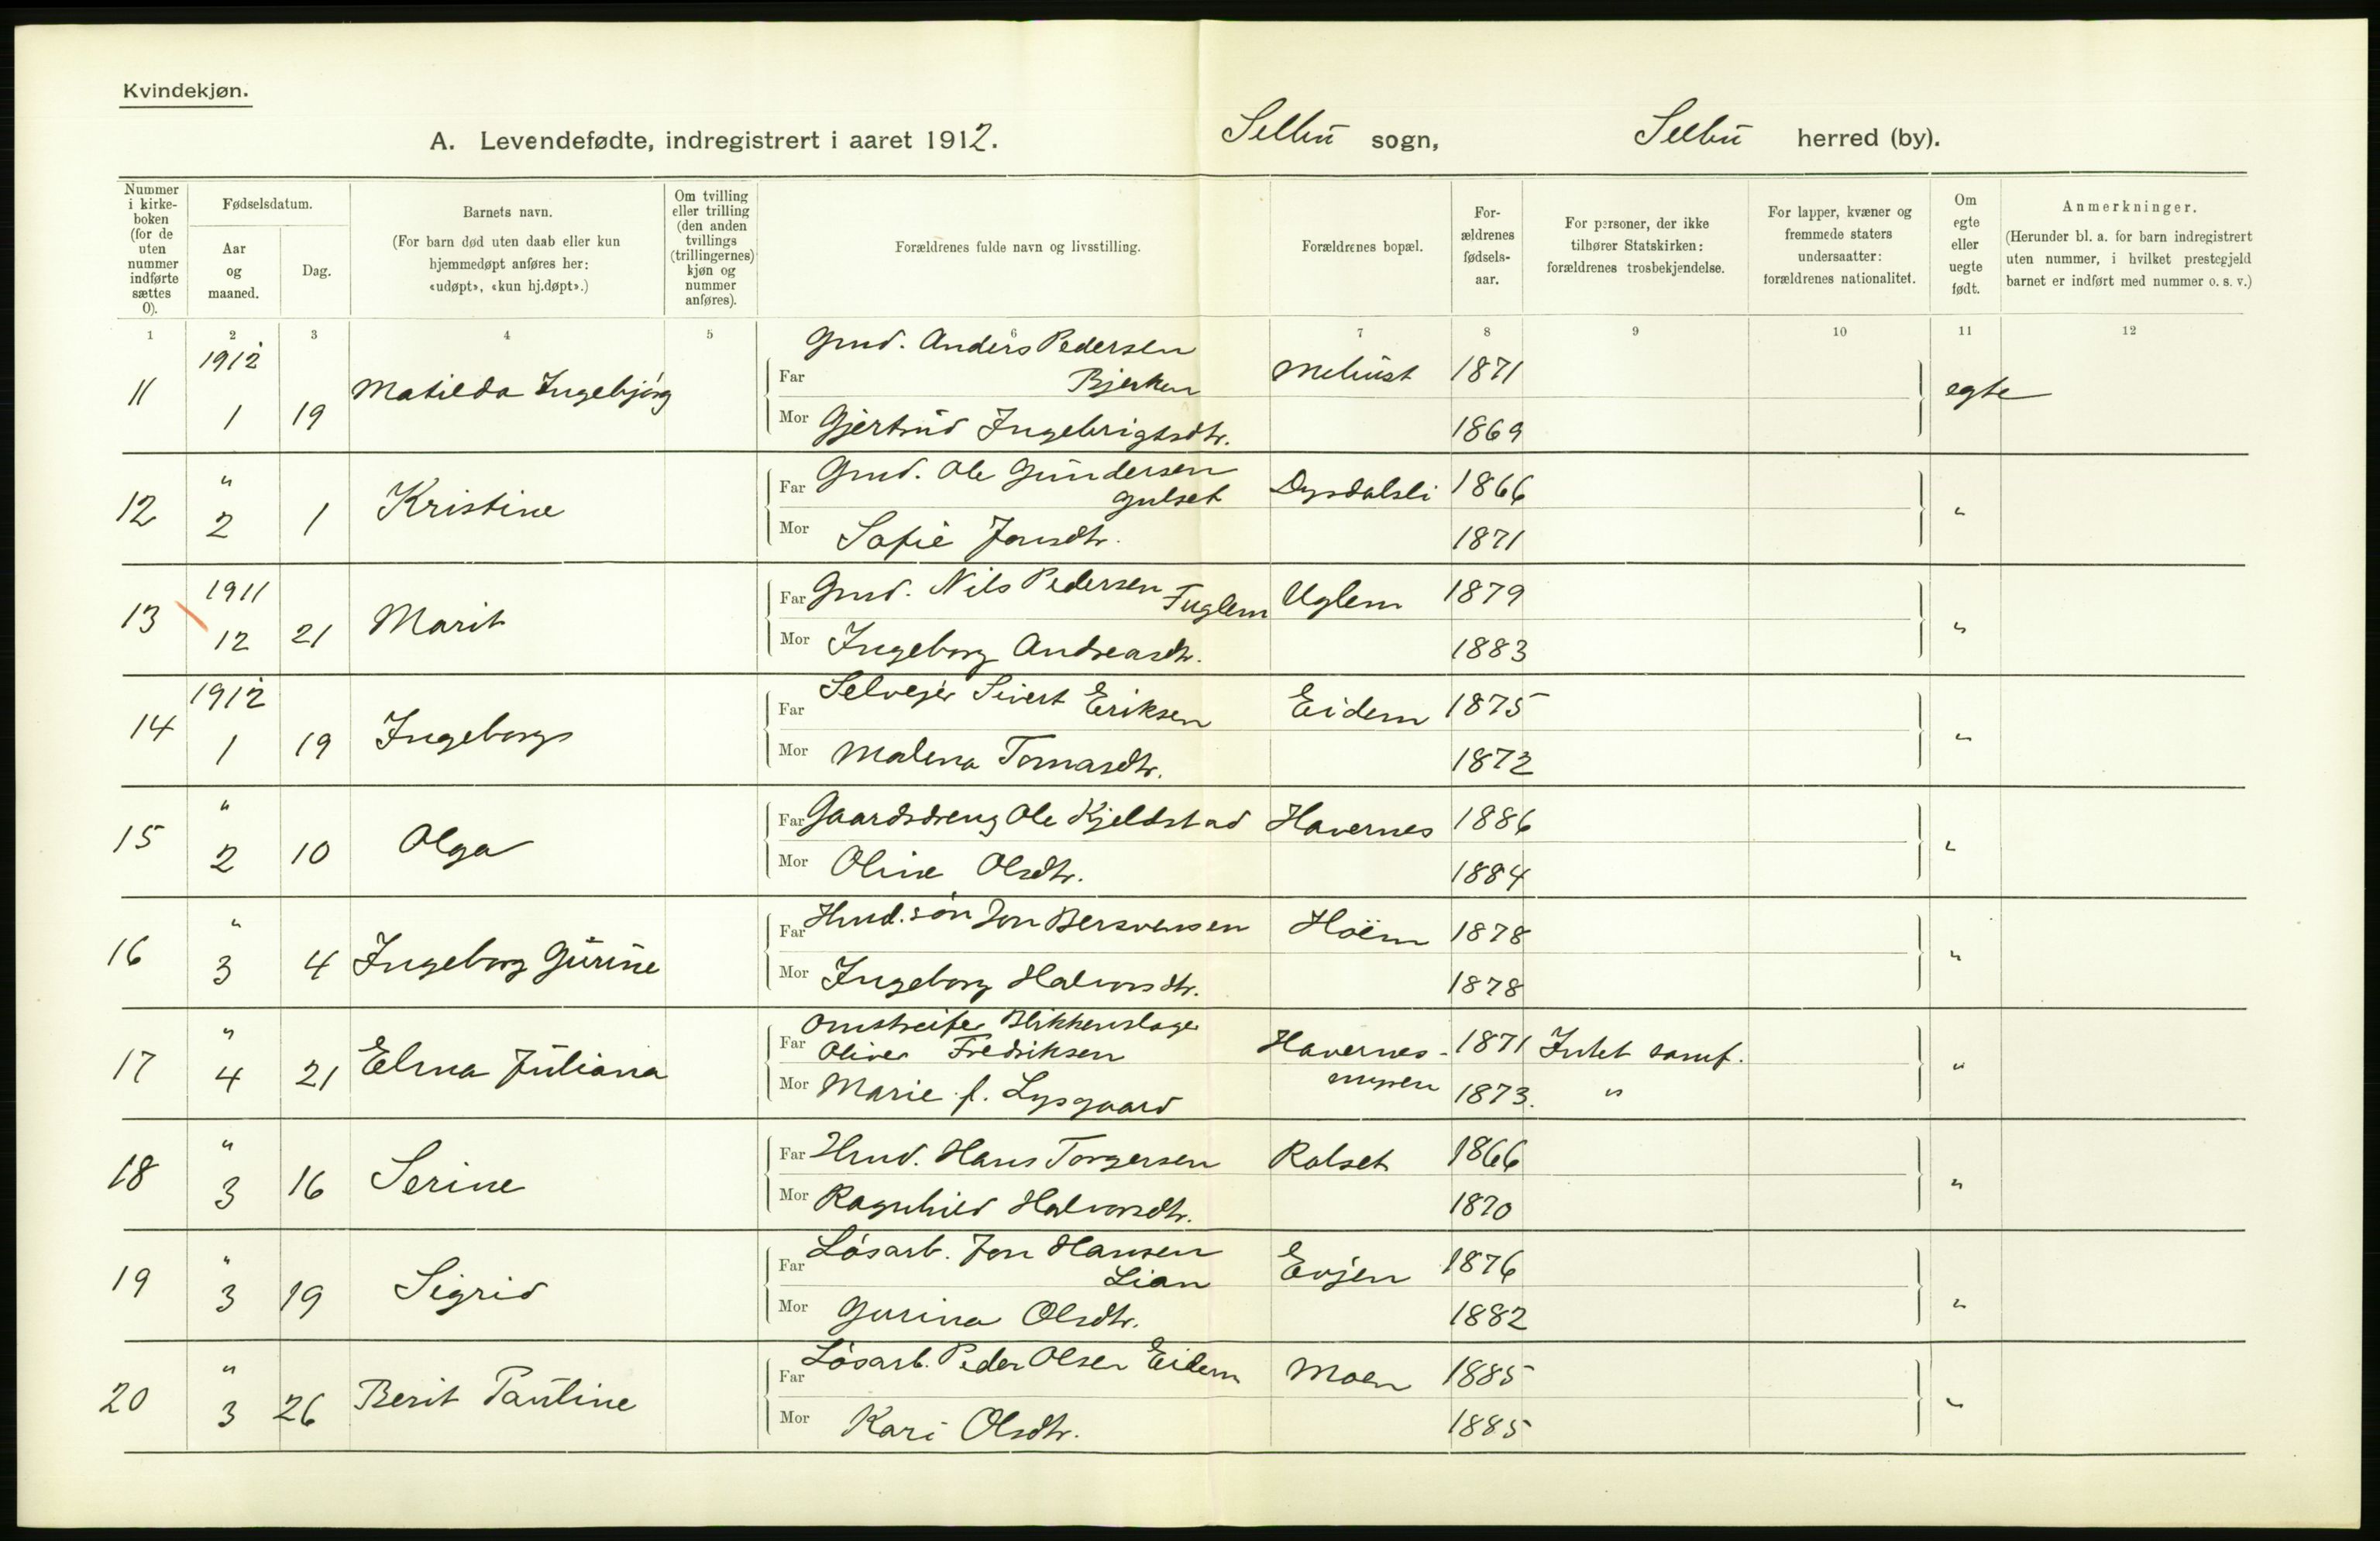 Kvindekjøn.
A. Levendefødte, indregistrert i aaret 1912. Selbu sogn, Selbu herred (by).
Nummer i kirke-boken (for de uten nummer indførte sættes 0).
Fødselsdatum.
Aar og maaned.
Dag.
Barnets navn.
(For barn død uten daab eller kun hjemmedøpt anføres her: «udøpt», «kun hj.døpt».)
Om tvilling eller trilling (den anden tvillings (trillingernes) kjøn og nummer anføres).
Forældrenes fulde navn og livsstilling.
Forældrenes bopæl.
For-ældrenes fødsels-aar.
For personer, der ikke tilhører Statskirken: forældrenes trosbekjendelse.
For lapper, kvæner og fremmede staters undersaatter: forældrenes nationalitet.
Om egte eller uegte født.
Anmerkninger.
(Herunder bl. a. for barn indregistrert uten nummer, i hvilket prestegjeld barnet er indført med nummer o. s. v.)
1 2 3 4 5 6 7 8 9 10 11 12
11 1912 1 19 Matilda Ingebjørg
Far Grd. Anders Pedersen Bjerken 1871 egte
Mor Gjertrud Ingebrigtsdtr. 1869
12 " 2 1 Kristine
Far Grd. Ole Gundersen Gulset Dyrdalsli 1866 "
Mor Sofie Jonsdtr. 1871
13 1911 12 21 Marit
Far Grd. Nils Pedersen Fuglem Uglem 1879 "
Mor Ingeborg Andreasdtr. 1883
14 1912 1 19 Ingeborg
Far Selveier Sivert Eriksen Eidem 1875 "
Mor Malena Tomasdtr. 1872
15 " 2 10 Olga
Far Gaardsdreng Ole Kjeldstad Havernes 1886 "
Mor Oline Olsdtr. 1884
16 " 3 4 Ingeborg Gurine
Far Hmd.søn Jon Bersvensen Hoëm 1878 "
Mor Ingeborg Halvorsdtr. 1878
17 " 4 21 Elma Juliana
Far Omstreifer Blikkenslager Oliver Fredriksen Havernes- 1871 Intet samf. "
Mor Marie f. Lysgaard 1873. "
18 " 3 16 Serine
Far Hmd. Hans Torgersen Rolset 1866 "
Mor Ragnhild Halvorsdtr. 1870
19 " 3 19 Sigrid
Far Løsarb. Jon Hansen Lian Evjen 1876 "
Mor Gurina Olsdtr. 1882
20 " 3 26 Berit Pauline
Far Løsarb. Peder Olsen Eidem Moen 1885 "
Mor Kari Olsdtr. 1885